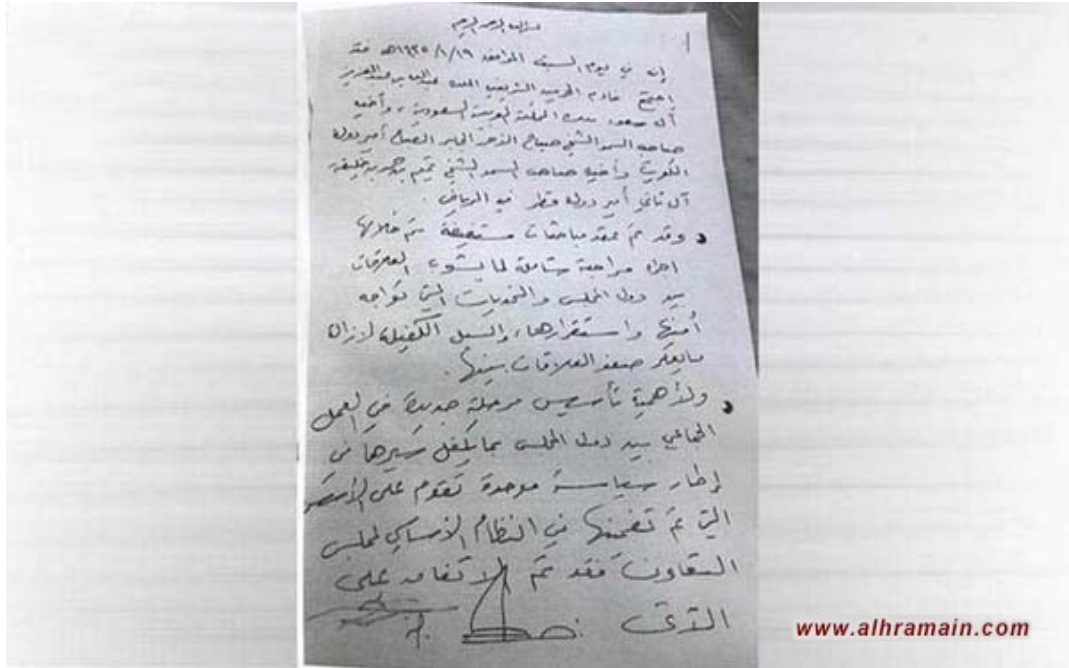 بسم الله الرحمن الرحيم
إنه في يوم السبت الموافق ١٤٣٥/١/١٩هـ فقد
اجتمع خادم الحرمين الشريفين الملك عبدالله بن عبدالعزيز
آل سعود، ملك المملكة العربية السعودية، وأخيه
صاحب السمو الشيخ صباح الأحمد الجابر الصباح أمير دولة
الكويت وأخيه صاحب السمو الشيخ تميم بن حمد بن خليفة
آل ثاني أمير دولة قطر في الرياض.
وقد تم عقد مباحثات مستفيضة تم خلالها
اجراء مراجعة شاملة لما يشوب العلاقات
بين دول المجلس والتحديات التي تواجه
أمنها واستقرارها، والسبل الكفيلة لازالة
ما يعكر صفو العلاقات بينها.
ولأهمية تأسيس مرحلة جديدة في العمل
الجماعي بين دول المجلس بما يكفل سيرها في
إطار سياسة موحدة تقوم على الأسس
التي تم تضمينها في النظام الأساسي لمجلس
التعاون فقد تم الاتفاق على
الآتي :
www.alhramain.com